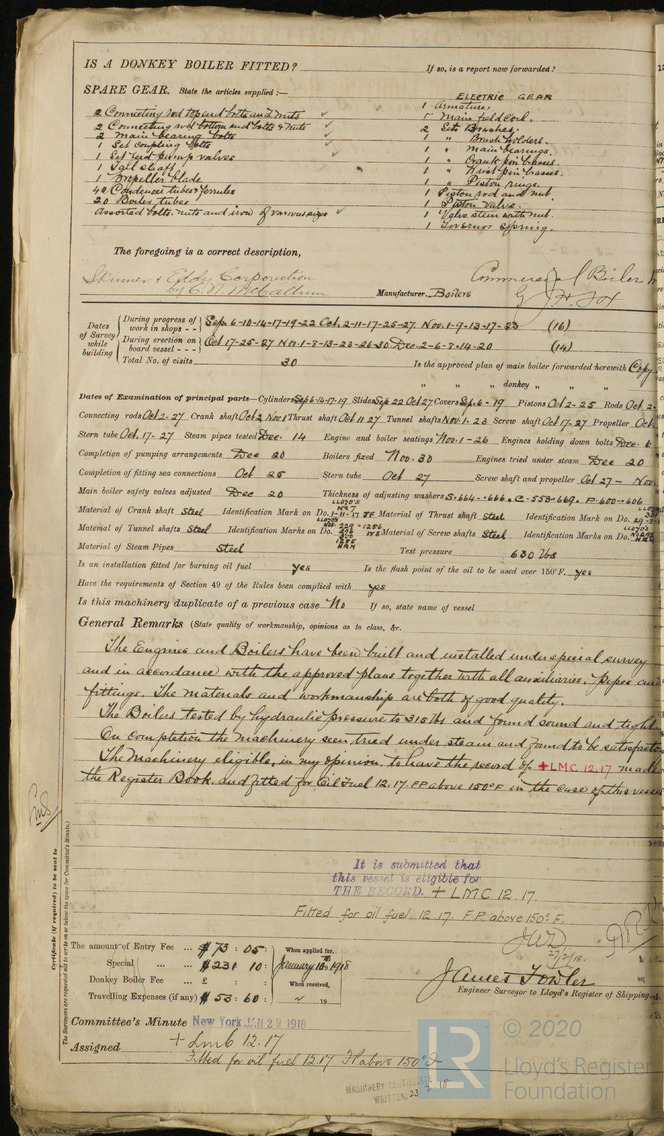 IS A DONKEY BOILER FITTED?
If so, is a report now forwarded?
SPARE GEAR. State the articles supplied:—
2 Connecting rod top end bolts and nuts
2 Connecting rod bottom end bolts & nuts
2 Main bearing bolts
1 Set coupling bolts
1 Set feed pump valves
1 Tail shaft
1 Propeller blade
40 Condenser tubes & ferrules
20 Boiler tubes
Assorted bolts, nuts and iron of various sizes
ELECTRIC GEAR
1 Armature.
1 Main field coil.
2 Sets Brushes.
1 " Brush holders.
1 " Main bearings.
1 " Crank pin brasses.
1 " Wrist pin brasses.
1 " Piston rings.
1 Piston rod and nut.
1 Piston valve.
1 Valve stem with nut.
1 Governor spring.
The foregoing is a correct description,
Skinner & Eddy Corporation
by C. W. McCallum
Commercial Boiler
Manufacturer. Boilers
J. H. Fox
Dates of Survey while building
During progress of work in shops - - Sep. 6-10-14-17-19-22 Oct. 2-11-17-25-27. Nov. 1-9-13-17-23 (16)
During erection on board vessel - - - Oct 17-25-27 Nov. 1-8-13-23-26-30 Dec. 2-6-8-14-20 (14)
Total No. of visits 30
Is the approved plan of main boiler forwarded herewith Copy
" " " donkey " " "
Dates of Examination of principal parts—Cylinders Sep 6-14-17-19 Slides Sep 22 Oct 27 Covers Sep. 6-19 Pistons Oct 2-25 Rods Oct 2-
Connecting rods Oct 2-27 Crank shaft Oct 2 Nov 1 Thrust shaft Oct 11 27 Tunnel shafts Nov. 1. 23 Screw shaft Oct 17-27 Propeller Oct.
Stern tube Oct. 17-27 Steam pipes tested Dec. 14 Engine and boiler seatings Nov. 1-26 Engines holding down bolts Dec. 6
Completion of pumping arrangements Dec 20 Boilers fixed Nov. 30 Engines tried under steam Dec 20
Completion of fitting sea connections Oct 25 Stern tube Oct 27 Screw shaft and propeller Oct 27 - Nov.
Main boiler safety valves adjusted Dec 20 Thickness of adjusting washers S.-664-.666. C.-553-669. P.-600-606
Material of Crank shaft Steel Identification Mark on Do. LLOYD'S No 7 1-11-17 JF Material of Thrust shaft Steel Identification Mark on Do.
Material of Tunnel shafts Steel Identification Marks on Do. LLOYDS Material of Screw shafts Steel Identification Marks on Do.
Material of Steam Pipes Steel Test pressure 630 lbs
Is an installation fitted for burning oil fuel yes Is the flash point of the oil to be used over 150°F. yes
Have the requirements of Section 49 of the Rules been complied with yes
Is this machinery duplicate of a previous case No If so, state name of vessel
General Remarks (State quality of workmanship, opinions as to class, &c.
The Engines and Boilers have been built and installed under special survey
and in accordance with the approved plans together with all auxiliaries. Pipes and
fittings. The materials and workmanship are both of good quality.
The Boilers tested by hydraulic pressure to 315 lbs and found sound and tight.
On completion the machinery seen tried under steam and found to be satisfactory
The Machinery eligible, in my opinion to have the record of + LMC 12.17 made
the Register Book and fitted for Oil Fuel 12.17. F.P. above 150°F in the case of this vessel
Certificate (if required) to be sent to
The Surveyors are requested not to write on or below the space for Committee's Minute.
It is submitted that
this vessel is eligible for
THE RECORD. + LMC 12.17.
Fitted for oil fuel 12.17. F.P. above 150°F.
JWD
27/2/18.
The amount of Entry Fee ... $ 73 : 05 :
Special ... ... $ 231 : 10 :
Donkey Boiler Fee ... £ : :
Travelling Expenses (if any) $ 53 : 60 :
When applied for,
January 10th 1918
When received,
" 19
James Fowler
Engineer Surveyor to Lloyd's Register of Shipping
Committee's Minute New York JAN 29 1918
Assigned + LMC 12.17
Fitted for oil fuel 12.17 FP above 150°F
MACHINERY CERTIFICATE
WRITTEN. 23.2.18
LR
© 2020
Lloyd's Register
Foundation